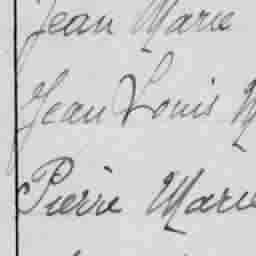 Jean Marie
Jean Louis M
Pierre Marie